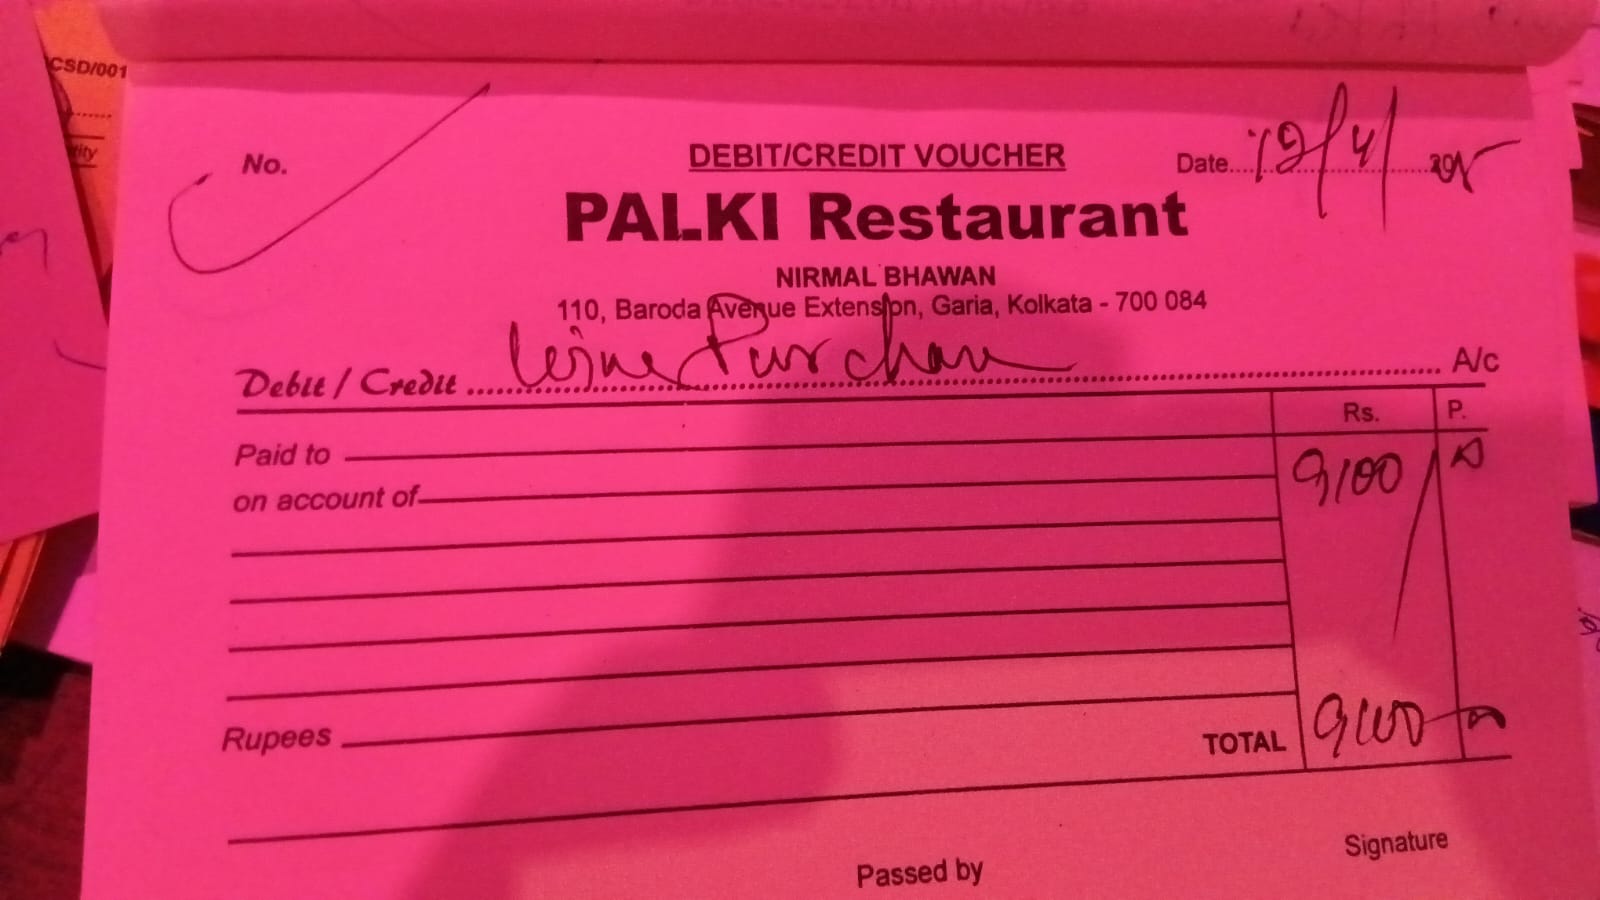 CSD/001
No.
DEBIT/CREDIT VOUCHER
Date 12/4/
PALKI Restaurant
NIRMAL BHAWAN
110, Baroda Avenue Extension, Garia, Kolkata - 700 084
Debit / Credit Wine Purchase A/c
Rs. P.
Paid to 9,100
on account of
Rupees
TOTAL 9,100
Signature
Passed by